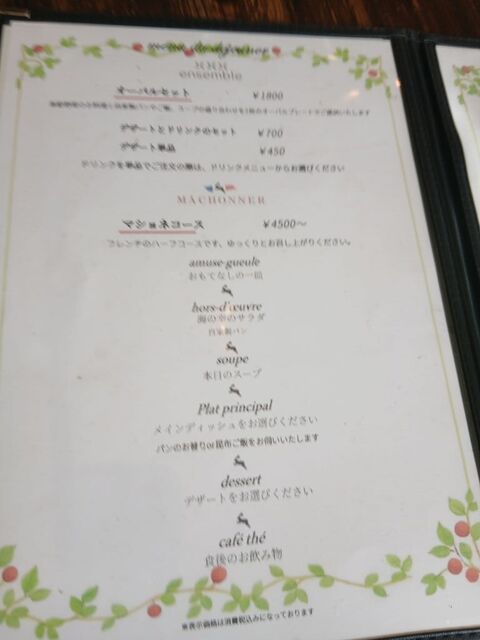 menu de déjeuner
ensemble
オーバルセット ¥1800
デザートとドリンクのセット ¥700
デザート単品 ¥450
ドリンクを単品でご注文の際は、ドリンクメニューからお選びください
MÂCHONNER
マショネコース ¥4500～
フレンチのハーフコースです、ゆっくりとお召し上がりください。
amuse-gueule
おもてなしの一皿
hors-d'œuvre
海の幸のサラダ
自家製パン
soupe
本日のスープ
Plat principal
メインディッシュをお選びください
パンのお替りor昆布ご飯をお伺いいたします
dessert
デザートをお選びください
café thé
食後のお飲み物
※表示価格は消費税込みになっております